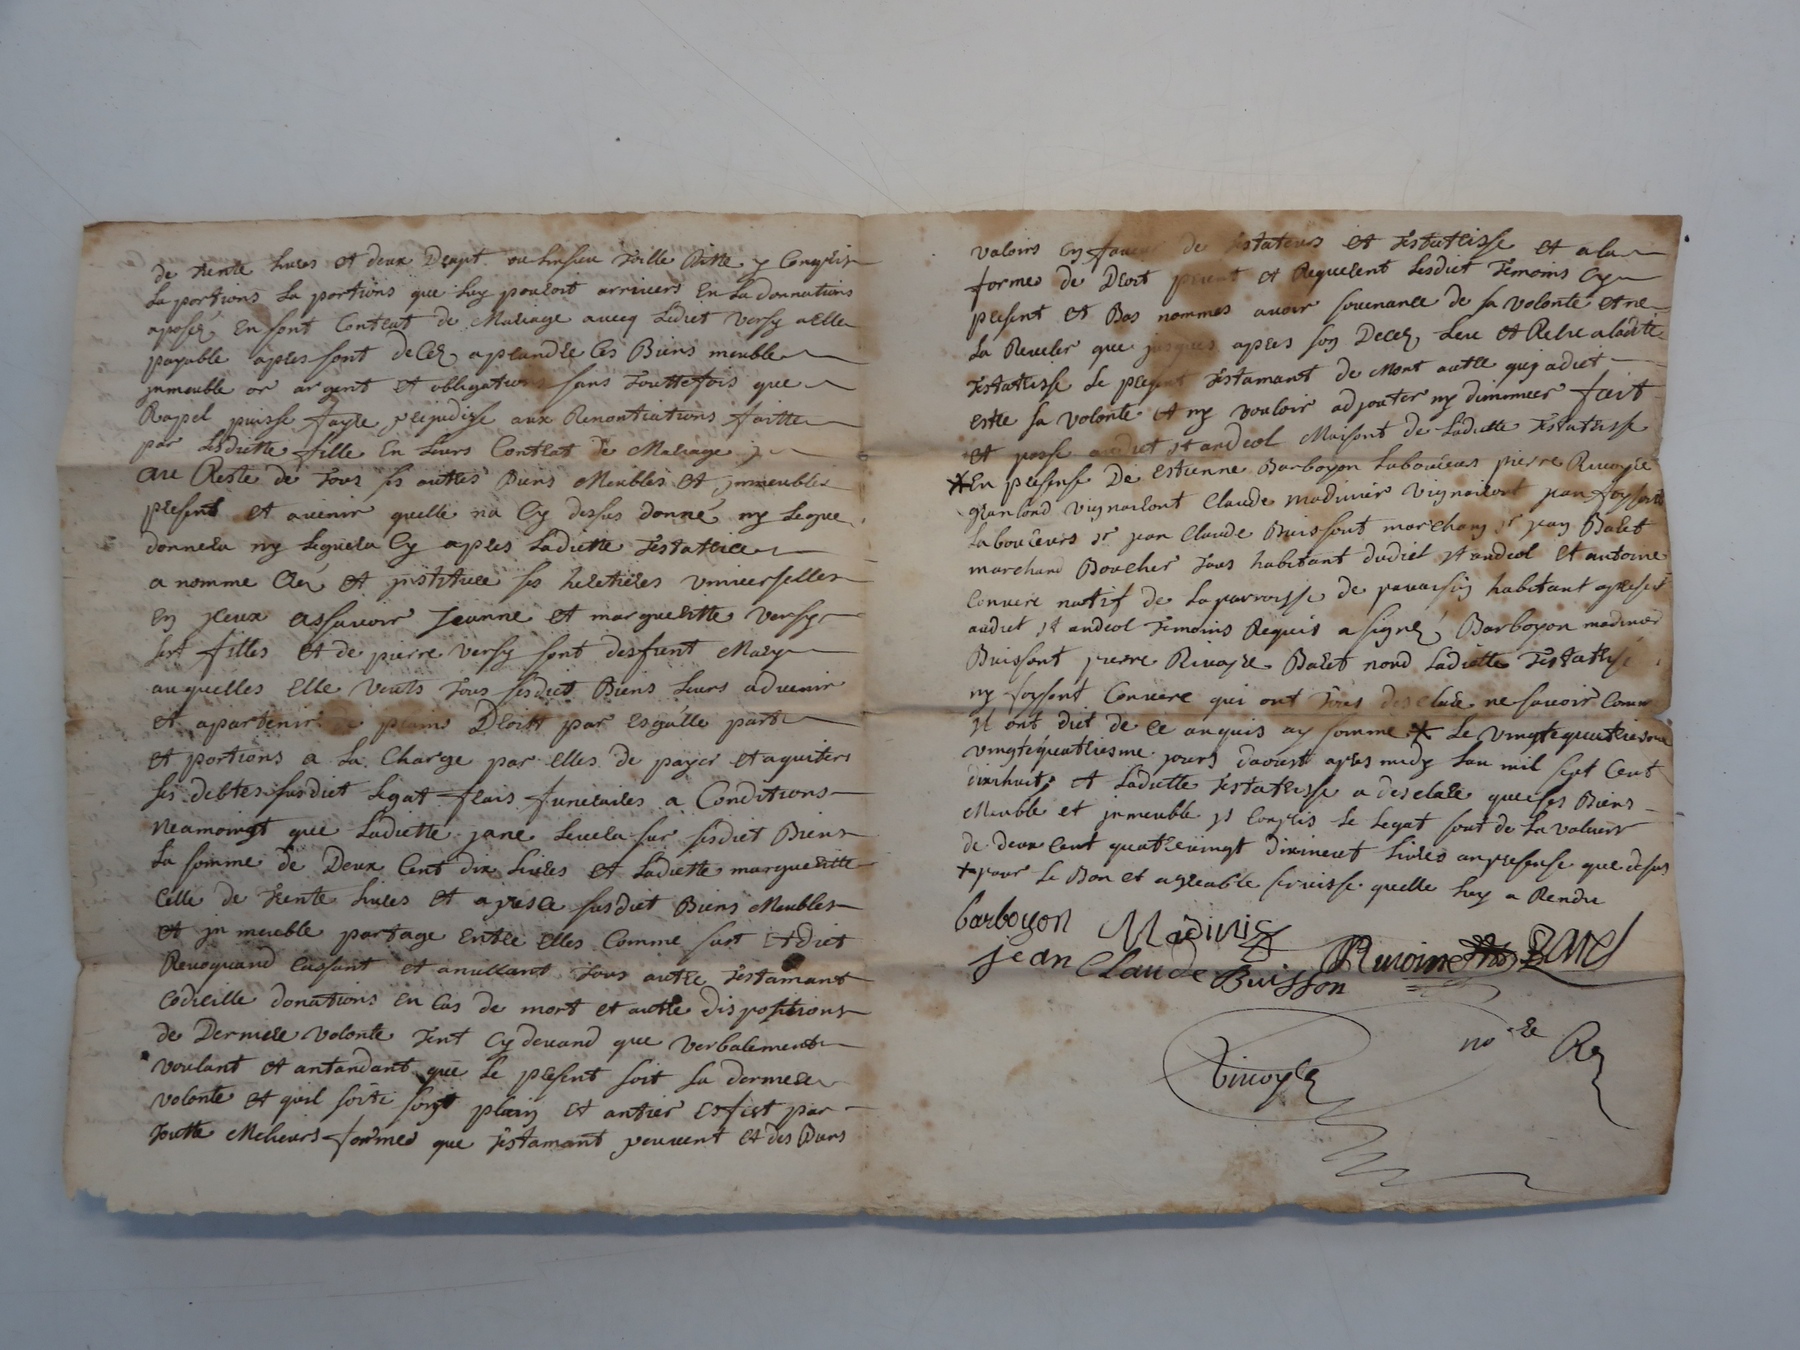 de trente livres et deux
La portions La portions que Luy pouroit arrivers En La donnations
aposés En sont Contrat de Mariage avecq Ledict Versy a elle
payable apres sont decez a prandre Ces Biens meuble
jnmeuble or argent et obligations sans Touttefois que
Rapel puisse fayre prejudisse aux Renontiations faitte
par Ladictte fille En Leurs Contrat de Mariage
au Reste de Tous ses autres Biens Meubles et jnmeubles
present et avenir quelle na Cy dessus donné ny Legue
donnera ny Leguera Cy apres Ladictte Testatrice
a nomme Creé et justituee ses heretieres vniverselles
En jceux assavoir Jeanne et margueritte Versy
ses filles et de pierre Versy sont deffunt Mary
auquelles Elle veuts Tous sesdict Biens Leurs advenir
et apartenir plain Droitt par Esgalle part
et portions a La Charge par elles de payer et aquiter
ses debtes susdict Legat frais funeraires a Conditions
Neamoingt que Ladictte jane Levera sur sesdict Biens
La somme de Deux Cent dix Livres et Ladictte margueritte
Celle de trente Livres et apres Ce susdict Biens Meubles
et jnmeuble partage Entre elles Comme sust Et dict
Revoquand Cassant et anullant Tous autre Testamant
Codicille donations En Cas de mort et autre dispositions
de Derniere volonte Tent Cy devand que verbalement
voulant et antandant que Le present soit sa derniere
volonte et quil sorte sont plain et antier Esfect par
Toutte Melieurs formes que Testamant peuvent et des Biens
valoirs En faveur de Testateurs et Testatrisse et a la
forme de Droit priant et Requerent Lesdict Temoins Cy
present et Bas nommes avoir souvenance de sa volonte et ne
La Reveler que jusques apres son Decez Leu et Releu a Ladite
Testatrisse Le present Testamant de Mont autre quy a dict
estre sa volonte et ny vouloir adjouter ny diminuer fait
et passe audict st andeol Maisont de Ladictte Testatrisse
* En presense De estienne Barboyon Laboureur pierre Rivoyre
granload vignairont Claude madinier vignairont jean foysont
Laboureurs sr jean Claude Buissont marchang sr jean Baret
marchand Boucher Tous habitant dudict st andeol et antoine
Convere natif de La parroisse de pavaisin habitant apresent
audict st andeol Temoins Requis a signé Barboyon madinier
Buissont pierre Rivoyre Baret nond Ladictte Testatrise
ny foysont Convere qui ont Tous desclaré ne savoir Comme
jl ont dict de Ce anquis ay somme * Le vingtequatriesme
vingtequatriesme jours daoust apres midy Lan mil sept Cent
dixhuit et Ladictte Testatrisse a desclare que ses Biens
Meuble et jnmeuble js Conpris Le Legat sont de La valeur
de deux Cent quatrevingt dixneuf Livres anpresense que desus
+ pour Le Bon et agreable servisse quelle Luy a Rendu
barboyon Madinie Rivoire Baret
jean Claude Buisson
Rivoyre nore Ro